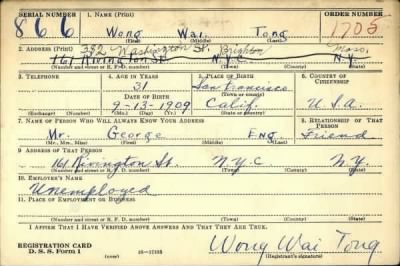 SERIAL NUMBER 1. NAME (Print) ORDER NUMBER
866 Wong Wai Tong 1705
(First) (Middle) (Last)
2. ADDRESS (Print) 332 Washington St. Brighton Mass.
161 Rivington St. N.Y.C. N.Y.
(Number and street or R. F. D. number) (Town) (County) (State)
3. TELEPHONE 4. AGE IN YEARS 5. PLACE OF BIRTH 6. COUNTRY OF CITIZENSHIP
31 San Francisco
DATE OF BIRTH (Town or county)
9-13-1909 Calif. U.S.A.
(Exchange) (Number) (Mo.) (Day) (Yr.) (State or country)
7. NAME OF PERSON WHO WILL ALWAYS KNOW YOUR ADDRESS 8. RELATIONSHIP OF THAT PERSON
Mr. George Eng. Friend
(Mr., Mrs., Miss) (First) (Middle) (Last)
9. ADDRESS OF THAT PERSON
161 Rivington St. N.Y.C. N.Y.
(Number and street or R. F. D. number) (Town) (County) (State)
10. EMPLOYER'S NAME
Unemployed
11. PLACE OF EMPLOYMENT OR BUSINESS
(Number and street or R. F. D. number) (Town) (County) (State)
I AFFIRM THAT I HAVE VERIFIED ABOVE ANSWERS AND THAT THEY ARE TRUE.
REGISTRATION CARD
D. S. S. Form 1 (over) Wong Wai Tong
(Registrant's signature)